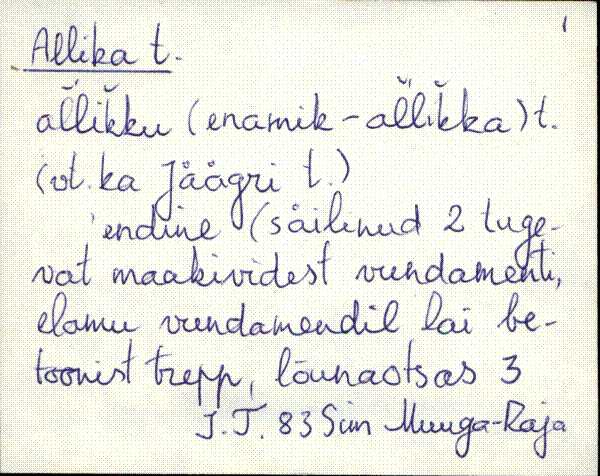 1
Allika t.
al̆lik̆ku (enamik - al̆lik̆ka) t.
(vt. ka Jäägri t.)
'endine (säilinud 2 tuge-
vat maakividest vundamenti,
elamu vundamendil lai be-
toonist trepp, lõunaotsas 3
J.T. 83 Siin Muuga-Raja